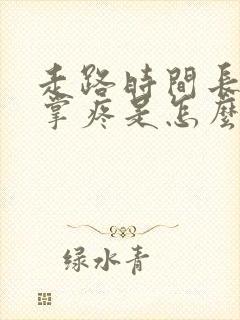 走路時間長
掌疼是怎麼
绿水青